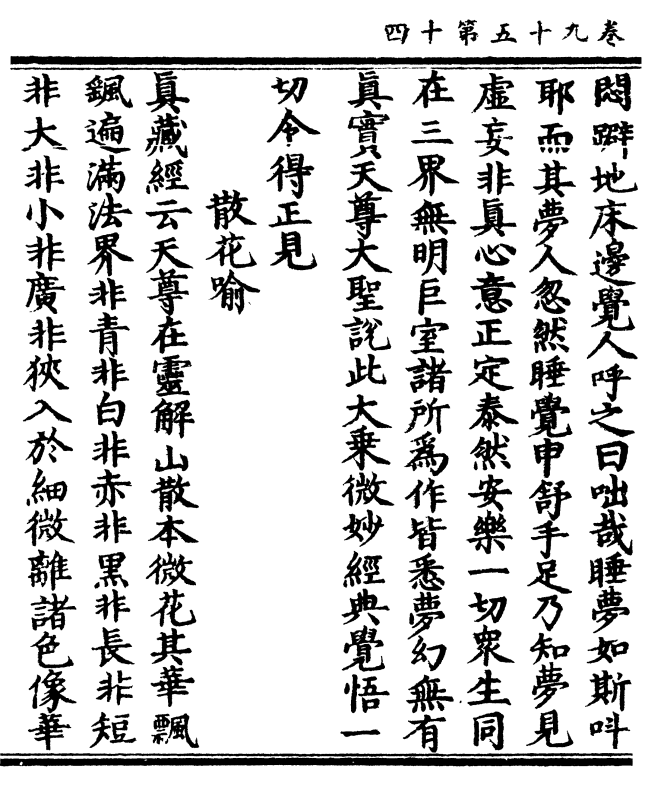 卷九十五第十四
悶躃地床邊覺人呼之曰咄哉睡夢如斯呌
耶而其夢人忽然睡覺申舒手足乃知夢見
虛妄非眞心意正定泰然安樂一切衆生同
在三界無明巨室諸所爲作皆悉夢幻無有
眞實天尊大聖說此大乗微妙經典覺悟一
切令得正見
散花喻
眞藏經云天尊在靈解山散本微花其華飄
颻遍滿法界非青非白非赤非黒非長非短
非大非小非廣非狹入於細微離諸色像華